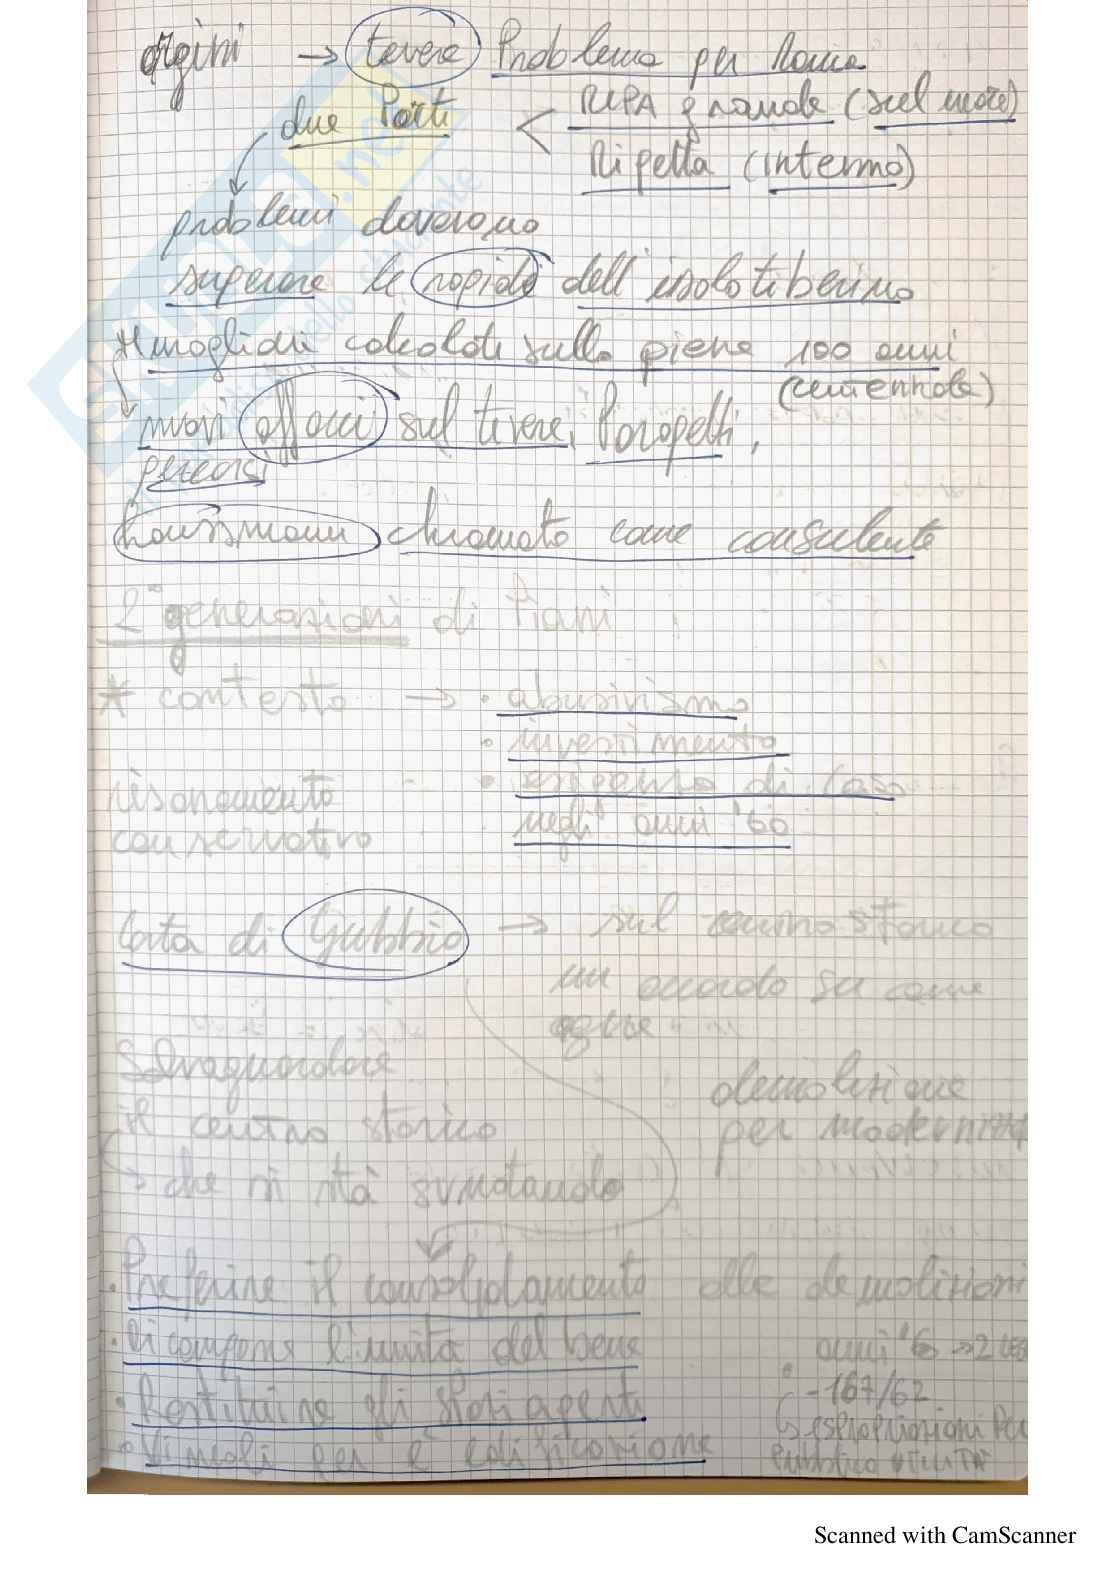 argini → tevere Problema per Roma
due Porti < RIPA grande (sul mare)
Ripetta (interno)
problemi dovevano
superare le rapide dell'isola tiberina
* muraglioni calcolati sulla piena 100 anni
(centennale)
nuovi affacci sul tevere, Parapetti,
percorsi
haussmann chiamato come consulente
2° generazioni di Piani
* contesto → • abusivismo
• investimento
risanamento • esigenza di casa
conservativo negli anni '60
Carta di Gubbio → sul centro storico
un accordo su come
agire
Salvaguardare demolizione
il centro storico per modernità
→ che si sta svuotando
• Preferire il consolidamento alle demolizioni
• Ricomporre l'unità del bene anni '6
• Restituire gli spazi aperti - 167/62
↳ espropriazioni Per
• Vincoli per e edificazione Pubblica UTILITÀ
Scanned with CamScanner